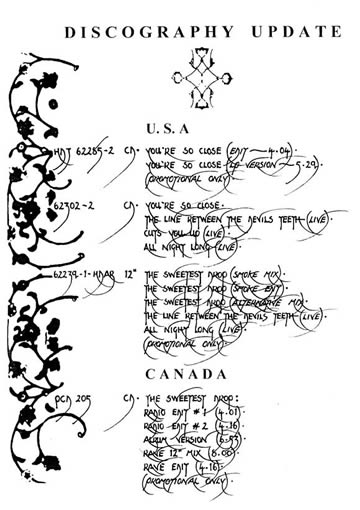 DISCOGRAPHY UPDATE
U.S.A
HDT 62285-2 CD. YOU'RE SO CLOSE (EDIT ~ 4.04).
YOU'RE SO CLOSE (LP VERSION ~ 5.29).
(PROMOTIONAL ONLY)
62302-2 CD. YOU'RE SO CLOSE.
THE LINE BETWEEN THE DEVILS TEETH (LIVE).
CUTS YOU UP (LIVE).
ALL NIGHT LONG (LIVE).
62279-1-HDAB 12" THE SWEETEST DROP (SMOKE MIX).
THE SWEETEST DROP (SMOKE EDIT).
THE SWEETEST DROP (ALTERNATIVE MIX).
THE LINE BETWEEN THE DEVILS TEETH (LIVE).
ALL NIGHT LONG (LIVE).
(PROMOTIONAL ONLY).
CANADA
DCD 205 CD. THE SWEETEST DROP:
RADIO EDIT #1 (4.01).
RADIO EDIT #2 (4.16).
ALBUM VERSION (6.53).
RAVE 12" MIX (8.00).
RAVE EDIT (4.16).
(PROMOTIONAL ONLY).